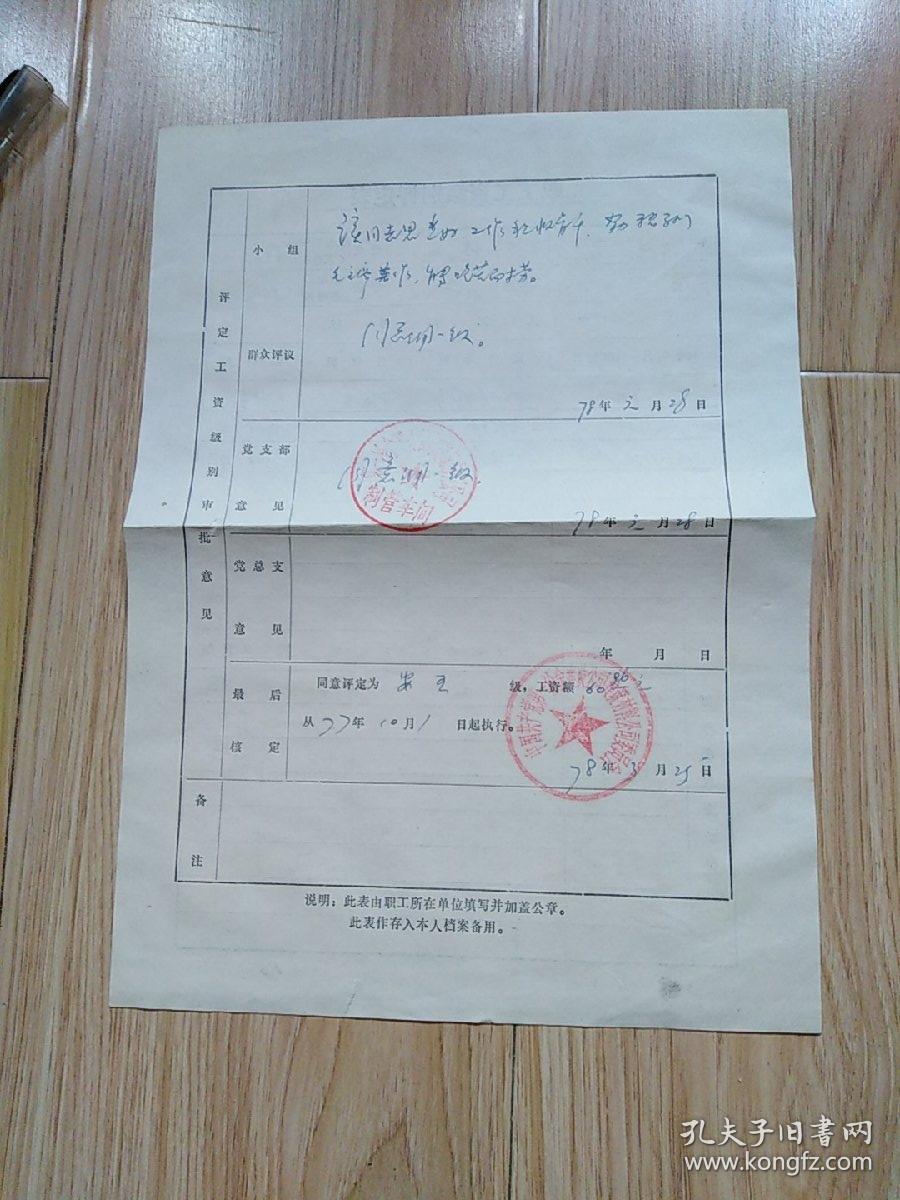 评定工资级别审批意见
小组
群众评议
该同志思想好 工作积极肯干
毛主席著作
同意调一级。
78年元月28日
党支部
意见
同意调一级
制管车间
78年元月28日
党总支
意见
年 月 日
最后
核定
同意评定为 级,工资额
从77年10月1日起执行。
中国共产党
78年3月25日
备
注
说明:此表由职工所在单位填写并加盖公章。
此表作存入本人档案备用。
孔夫子旧书网
www.kongfz.com